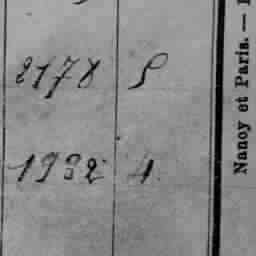 2178 5
1932 4
Nancy et Paris. —